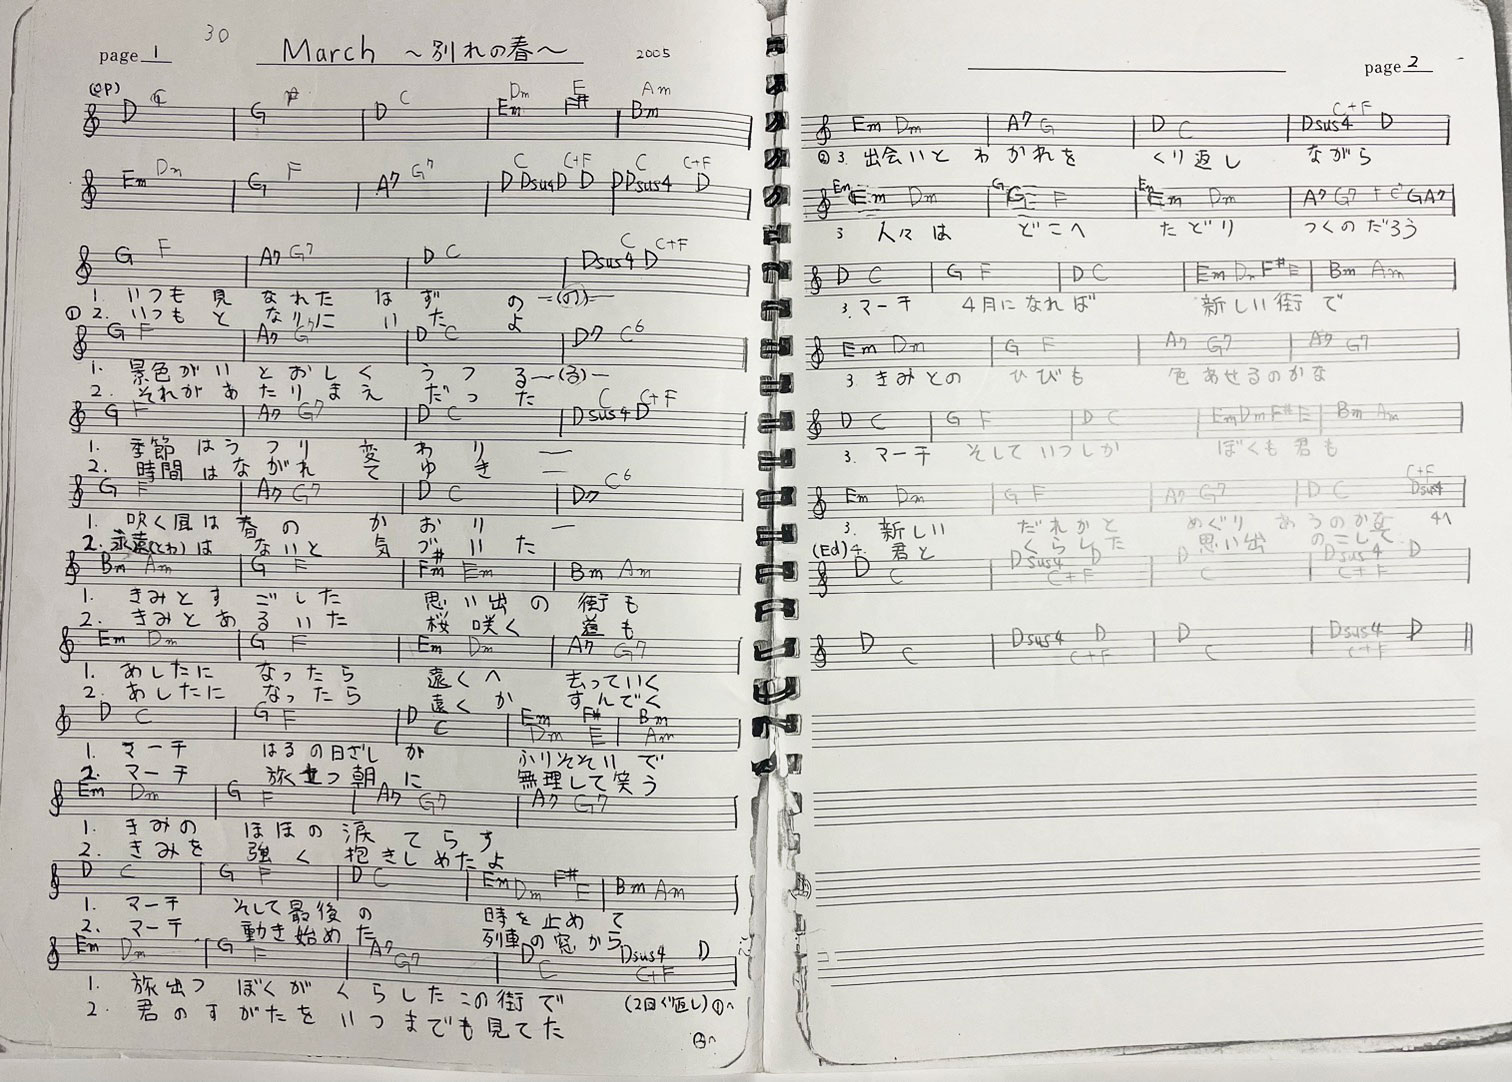 30
page 1 March ～別れの春～ 2005
(OP)
D C G F D C Em Dm F# E Bm Am
Em Dm G F A7 G7 D Dsus4 D D Dsus4 D C C+F C C+F
G F A7 G7 D C Dsus4 D C C+F
1. いつも見なれたはずの―(の)―
① 2. いつもとなりにいたよ
G F A7 G7 D C D7 C6
1. 景色がいとおしくうつる―(る)―
2. それがあたりまえだった
G F A7 G7 D C Dsus4 D C C+F
1. 季節はうつり変わり―
2. 時間はながれてゆき―
G F A7 G7 D C D7 C6
1. 吹く風は春のかおり―
2. 永遠(とわ)はないと気づいた
Bm Am G F F#m Em Bm Am
1. きみとすごした思い出の街も
2. きみとあるいた桜咲く道も
Em Dm G F Em Dm A7 G7
1. あしたになったら遠くへ去っていく
2. あしたになったら遠くかすんでく
D C G F D C Em Dm F# E Bm Am
1. マーチ はるの日ざしがふりそそいで
2. マーチ 旅立つ朝に無理して笑う
Em Dm G F A7 G7 A7 G7
1. きみのほほの涙てらす
2. きみを強く抱きしめたよ
D C G F D C Em Dm F# F Bm Am
1. マーチ そして最後の時を止めて
2. マーチ 動き始めた列車の窓から
Em Dm G F A7 G7 D C Dsus4 D C+F
1. 旅出つぼくがくらしたこの街で (2回くり返し)①へ
2. 君のすがたをいつまでも見てた
②へ
page 2
Em Dm A7 G D C Dsus4 D C+F
② 3. 出会いとわかれをくり返しながら
Em Em Dm G G F Em Em Dm A7 G7 F C GA7
3 人々はどこへたどりつくのだろう
D C G F D C Em Dm F# E Bm Am
3. マーチ 4月になれば新しい街で
Em Dm G F A7 G7 A7 G7
3 きみとのひびも色あせるのかな
D C G F D C Em Dm F# E Bm Am
3. マーチ そしていつしかぼくも君も
Em Dm G F A7 G7 D C Dsus4 C+F
3. 新しいだれかとめぐりあうのかな 4へ
(Ed) 4. 君とくらした思い出のこして
D C Dsus4 D C+F D C Dsus4 D C+F
D C Dsus4 D C+F D C Dsus4 D C+F